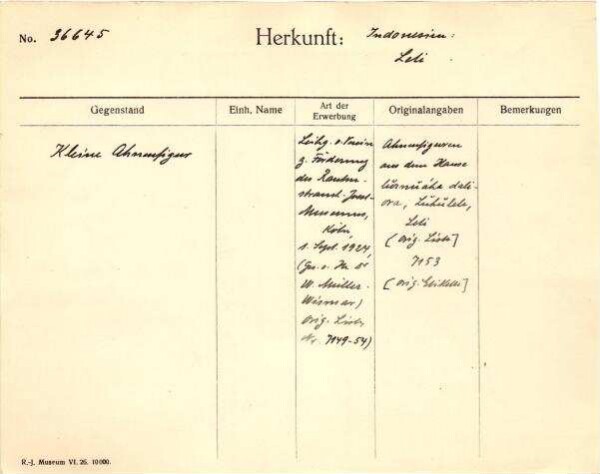 No. 36645
Herkunft: Indonesien:
Leti
Gegenstand
Einh. Name
Art der
Erwerbung
Originalangaben
Bemerkungen
Kleine Ahnenfigur
Leihg. v. Verein
z. Förderung
des Rauten-
strauch-Joest-
Museums,
Köln,
1. Sept. 1927,
W. Müller-
Wismar)
Orig. Liste
Nr. 7149-54)
Ahnenfiguren
aus dem Hause
Luhulele,
Leti
(Orig. Liste]
7153
(Orig. Etikette]
R.-J. Museum VI. 26. 10000.